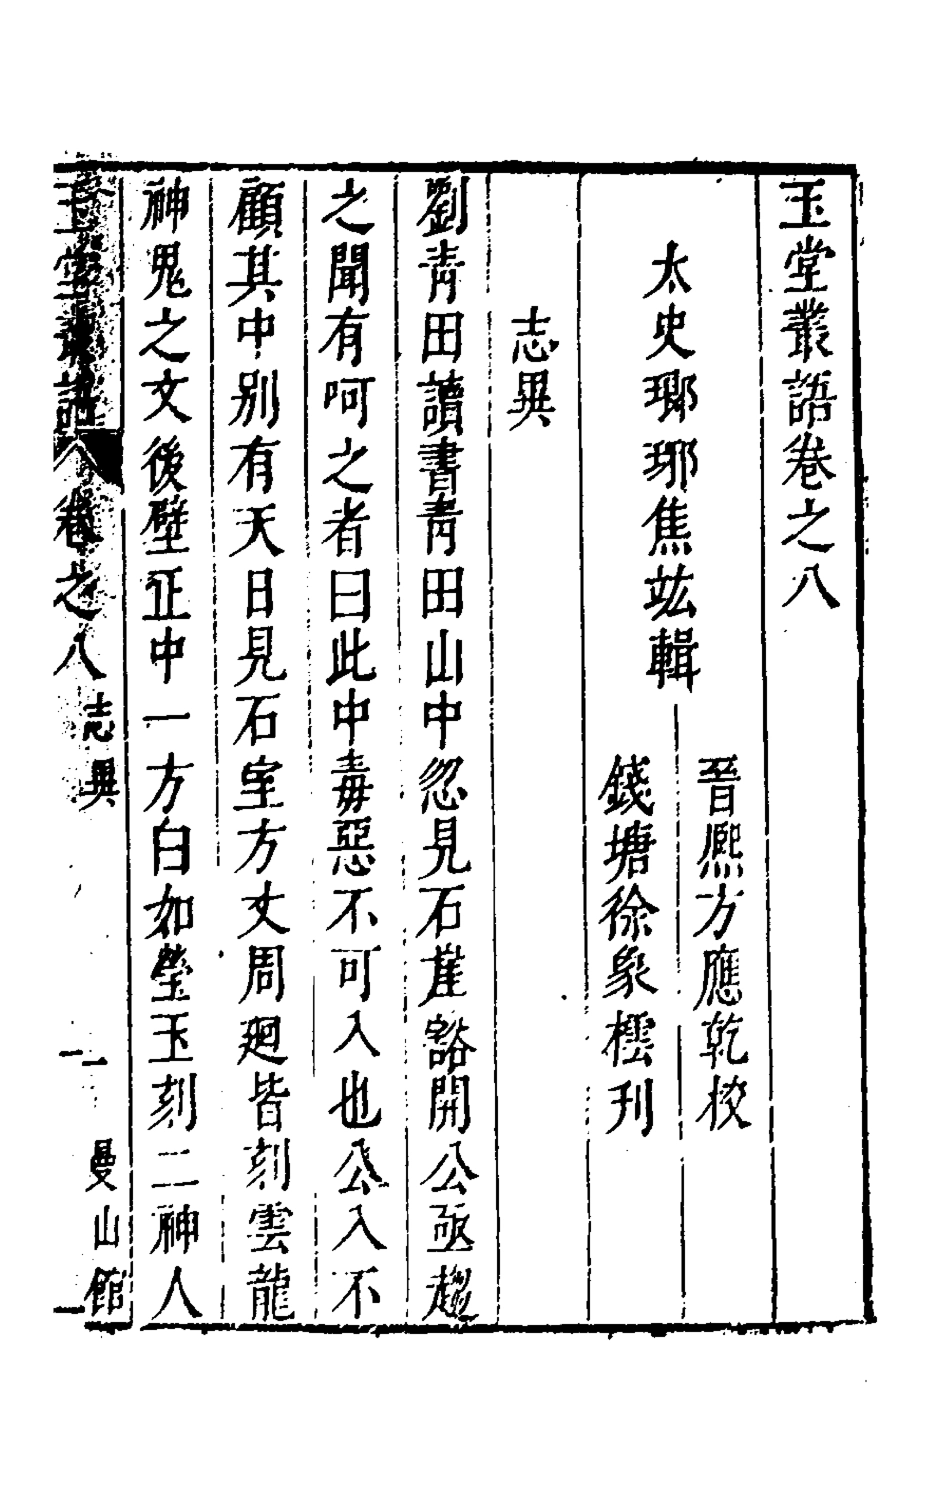 玉堂叢語卷之八
太史瑯琊焦竑輯
晉熈方應乾校
錢塘徐象橒刊
志異
劉青田讀書青田山中忽見石崖豁開公亟趨
之聞有呵之者曰此中毒惡不可入也公入不
顧其中別有天日見石室方丈周廻皆刻雲龍
神鬼之文後壁正中一方白如瑩玉刻二神人
玉堂叢語 卷之八 志異 一 曼山館